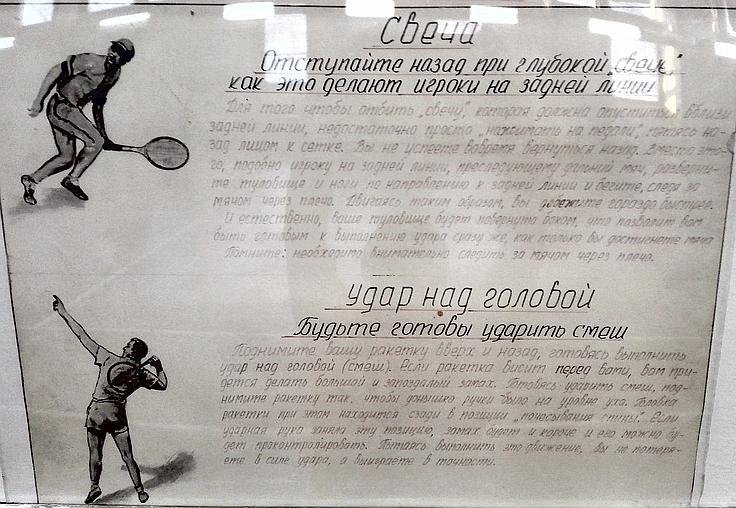 Свеча
Отступайте назад при глубокой „свече",
как это делают игроки на задней линии
Для того чтобы отбить „свечу", которая должна опуститься вблизи
задней линии, недостаточно просто „нажимать на педали", пятясь на-
зад лицом к сетке. Вы не успеете вовремя вернуться назад. Вместо это-
го, подобно игроку на задней линии, преследующему дальний мяч, разверни-
те туловище и ноги по направлению к задней линии и бегите, следя за
мячом через плечо. Двигаясь таким образом, вы добежите гораздо быстрее.
И естественно, ваше туловище будет повернуто боком, что позволит вам
быть готовым к выполнение удара сразу же, как только вы достигнете мяча
Помните: необходимо внимательно следить за мячом через плечо.
Удар над головой
Будьте готовы ударить смеш
Поднимите вашу ракетку вверх и назад, готовясь выполнить
удар над головой (смеш). Если ракетка висит перед вами, вам при-
дется делать большой и запоздалый замах. Готовясь ударить смеш, под-
нимите ракетку так, чтобы донышко ручки было на уровне уха. Головка
ракетки при этом находится сзади в позиции „почесывания спины". Если
ударная рука заняла эту позицию, замах будет и короче и его можно бу-
дет проконтролировать. Пытаясь выполнить это движение, вы не потеря-
ете в силе удара, а выиграете в точности.